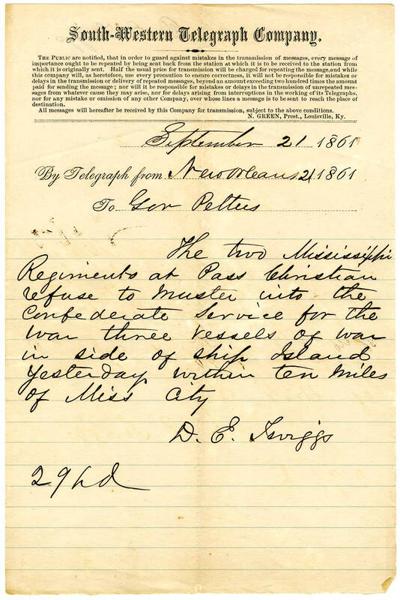 South-Western Telegraph Company.
THE PUBLIC are notified, that in order to guard against mistakes in the transmission of messages, every message of
importance ought to be repeated by being sent back from the station at which it is to be received to the station from
which it is originally sent. Half the usual price for transmission will be charged for repeating the message, and while
this company will, as heretofore, use every precaution to ensure correctness, it will not be responsible for mistakes or
delays in the transmission or delivery of repeated messages, beyond an amount exceeding two hundred times the amount
paid for sending the message; nor will it be responsible for mistakes or delays in the transmission of unrepeated mes-
sages from whatever cause they may arise, nor for delays arising from interruptions in the working of its Telegraphs,
nor for any mistake or omission of any other Company, over whose lines a message is to be sent to reach the place of
destination.
All messages will hereafter be received by this Company for transmission, subject to the above conditions.
N. GREEN, Prest., Louisville, Ky.
September 21 1861
By Telegraph from New Orleans 21 1861
To Gov Pettus
The two Mississippi
Regiments at Pass Christian
refuse to muster into the
Confederate Service for the
War three vessels of war
in side of ship Island
Yesterday within ten miles
of Miss City
D. E. Twiggs